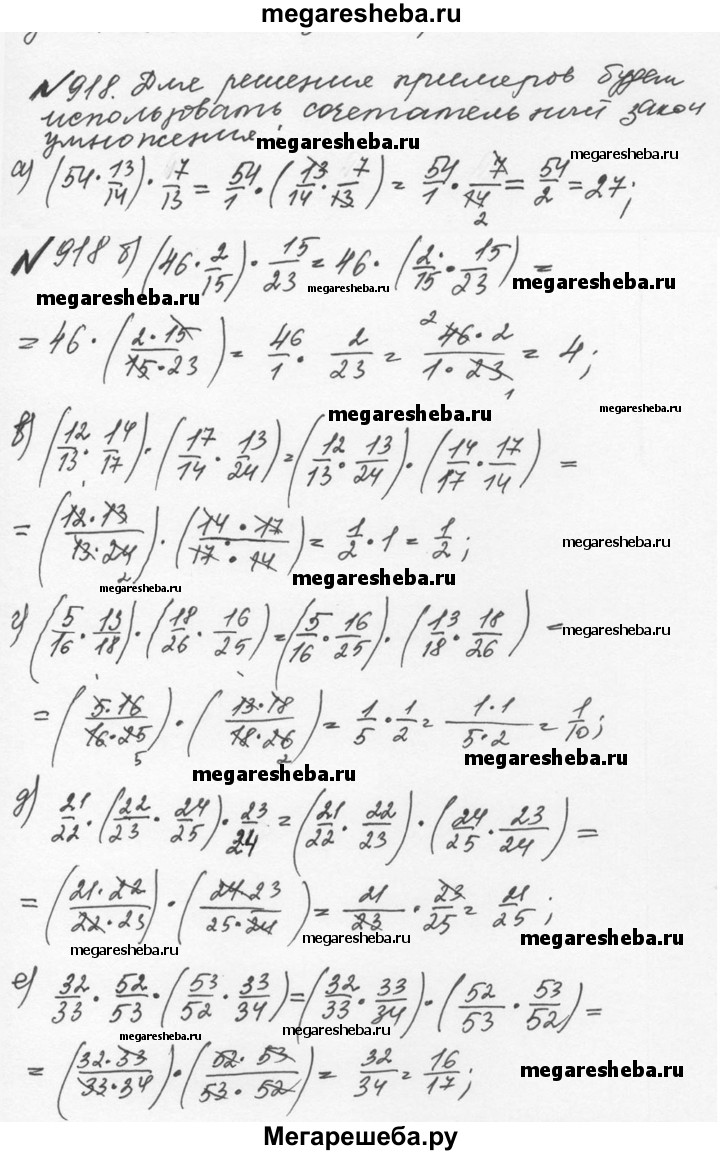 megaresheba.ru
№918. Для решения примеров будем
использовать сочетательный закон
умножения: megaresheba.ru megaresheba.ru
а) (54 · 13/14) · 7/13 = 54/1 · (13/14 · 7/13) = 54/1 · 7/14 2 = 54/2 = 27;
№918 б) (46 · 2/15) · 15/23 = 46 · (2/15 · 15/23) =
megaresheba.ru megaresheba.ru megaresheba.ru
= 46 · (2·15/15·23) = 46/1 · 2/23 = 2 46·2/1·23 1 = 4;
megaresheba.ru megaresheba.ru
в) (12/13 · 14/17) · (17/14 · 13/24) = (12/13 · 13/24) · (14/17 · 17/14) =
= (12·13/13·24 2) · (14·17/17·14) = 1/2 · 1 = 1/2; megaresheba.ru
megaresheba.ru megaresheba.ru
г) (5/16 · 13/18) · (18/26 · 16/25) = (5/16 · 16/25) · (13/18 · 18/26) = megaresheba.ru
= (5·16/16·25 5) · (13·18/18·26 2) = 1/5 · 1/2 = 1·1/5·2 = 1/10;
megaresheba.ru megaresheba.ru
д) 21/22 · (22/23 · 24/25) · 23/24 = (21/22 · 22/23) · (24/25 · 23/24) =
= (21·22/22·23) · (24·23/25·24) = 21/23 · 23/25 = 21/25;
megaresheba.ru megaresheba.ru megaresheba.ru
е) 32/33 · 52/53 · (53/52 · 33/34) = (32/33 · 33/34) · (52/53 · 53/52) =
megaresheba.ru megaresheba.ru
= (32·33/33·34) · (52·53/53·52) = 32/34 = 16/17; megaresheba.ru
Мегарешеба.ру